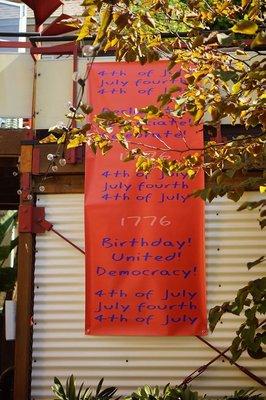 4th of July
July fourth
4th of July
1776
4th of July
July fourth
4th of July
1776
Birthday!
United!
Democracy!
4th of July
July fourth
4th of July